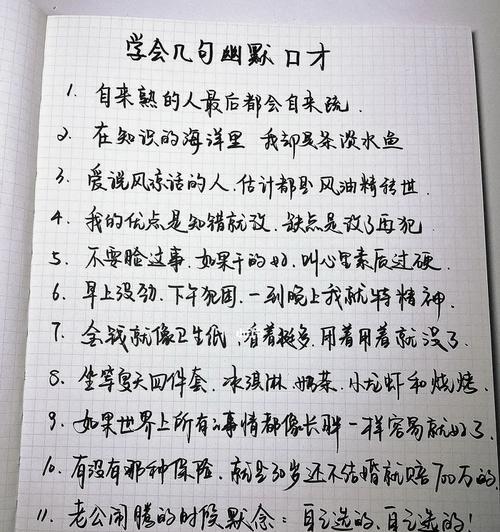 学会几句幽默口才
1. 自来熟的人最后都会自来疏.
2. 在知识的海洋里 我却是条淡水鱼
3. 爱说风凉话的人.估计都是风油精转世.
4. 我的优点是知错就改.缺点是改了再犯
5. 不要脸这事.如果干的好.叫心里素后过硬.
6. 早上没劲.下午犯困.一到晚上我就特精神.
7. 金钱就像卫生纸.看着挺多.用着用着就没了.
8. 坐等夏天四件套.冰淇淋.奶茶.小龙虾和烧烤.
9. 如果世界上所有的事情都像长胖一样容易就好了.
10. 有没有那种保险.就是30岁还不结婚就赔700万的.
11. 老公闹腾的时候默念:自己选的.自己选的!